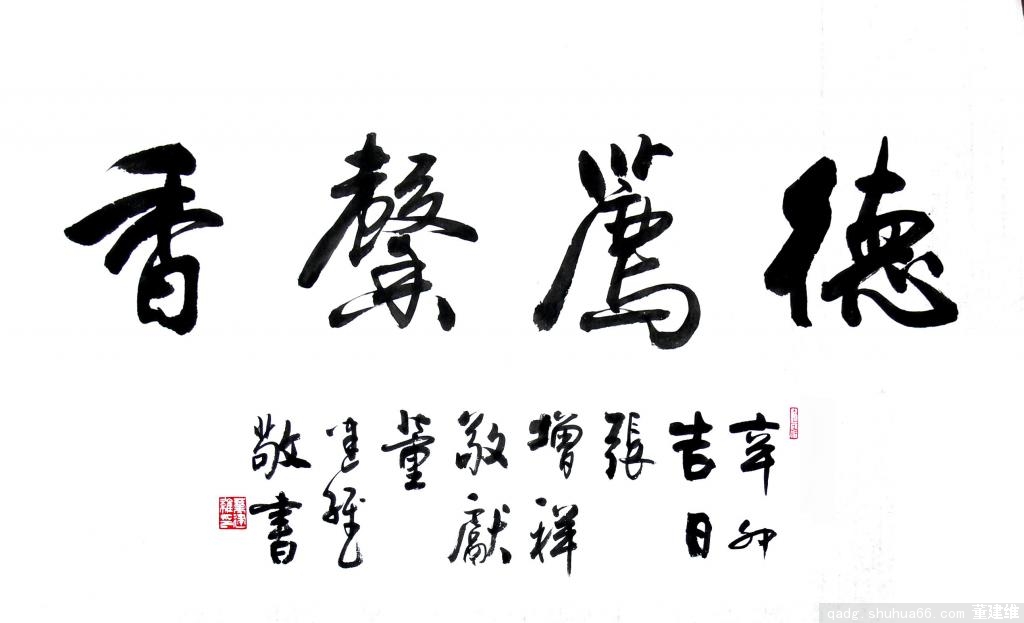 德薦馨香
辛卯
吉日
張
增祥
敬獻
董
建維
敬書
qadg.shuhua66.com 董建维